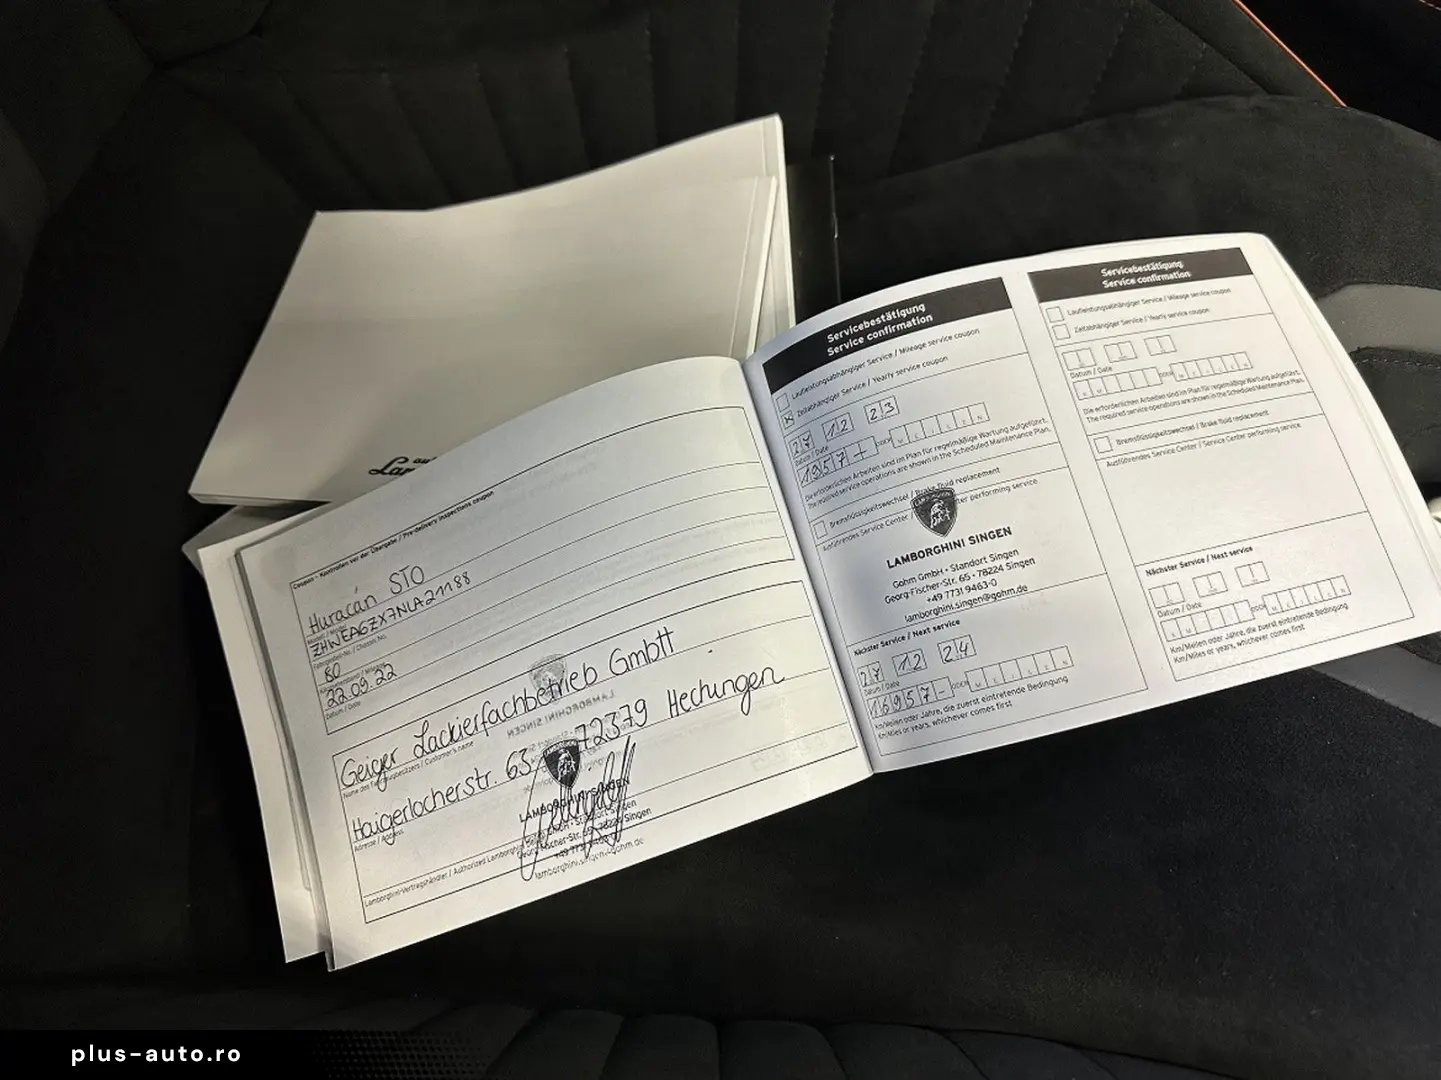 Coupon – Kontrollen vor der Übergabe / Pre-delivery inspections coupon
Huracán STO
Modell / Model
ZHWEA6ZX7NLA21188
Fahrgestell-Nr. / Chassis No.
80
22.09.22
Datum / Date
Geiger Lackierfachbetrieb GmbH
Name des Fahrzeugbesitzers / Customer's name
Haigerlocherstr. 63 72379 Hechingen
Adresse / Address
LAMBORGHINI SINGEN
Georg-Fischer-Str. 65 • 78224 Singen
lamborghini.singen@gohm.de
Lamborghini-Vertragshändler / Authorized Lamborghini
Servicebestätigung
Service confirmation
Laufleistungsabhängiger Service / Mileage service coupon
Zeitabhängiger Service / Yearly service coupon
27 12 23
Datum / Date
1957-
ODER
MEILEN
Die erforderlichen Arbeiten sind im Plan für regelmäßige Wartung aufgeführt.
The required service operations are shown in the Scheduled Maintenance Plan.
Bremsflüssigkeitswechsel / Brake fluid replacement
Ausführendes Service Center performing service
LAMBORGHINI
LAMBORGHINI SINGEN
Gohm GmbH • Standort Singen
Georg-Fischer-Str. 65 • 78224 Singen
+49 7731 9463-0
lamborghini.singen@gohm.de
Nächster Service / Next service
27 12 24
Datum / Date
16957-
ODER
MEILEN
Km/Meilen oder Jahre, die zuerst eintretende Bedingung
Km/Miles or years, whichever comes first
Servicebestätigung
Service confirmation
Laufleistungsabhängiger Service / Mileage service coupon
Zeitabhängiger Service / Yearly service coupon
Datum / Date
KM
ODER
MEILEN
Die erforderlichen Arbeiten sind im Plan für regelmäßige Wartung aufgeführt.
The required service operations are shown in the Scheduled Maintenance Plan.
Bremsflüssigkeitswechsel / Brake fluid replacement
Ausführendes Service Center / Service Center performing service
Nächster Service / Next service
Datum / Date
KM
ODER
MEILEN
Km/Meilen oder Jahre, die zuerst eintretende Bedingung
Km/Miles or years, whichever comes first
plus-auto.ro